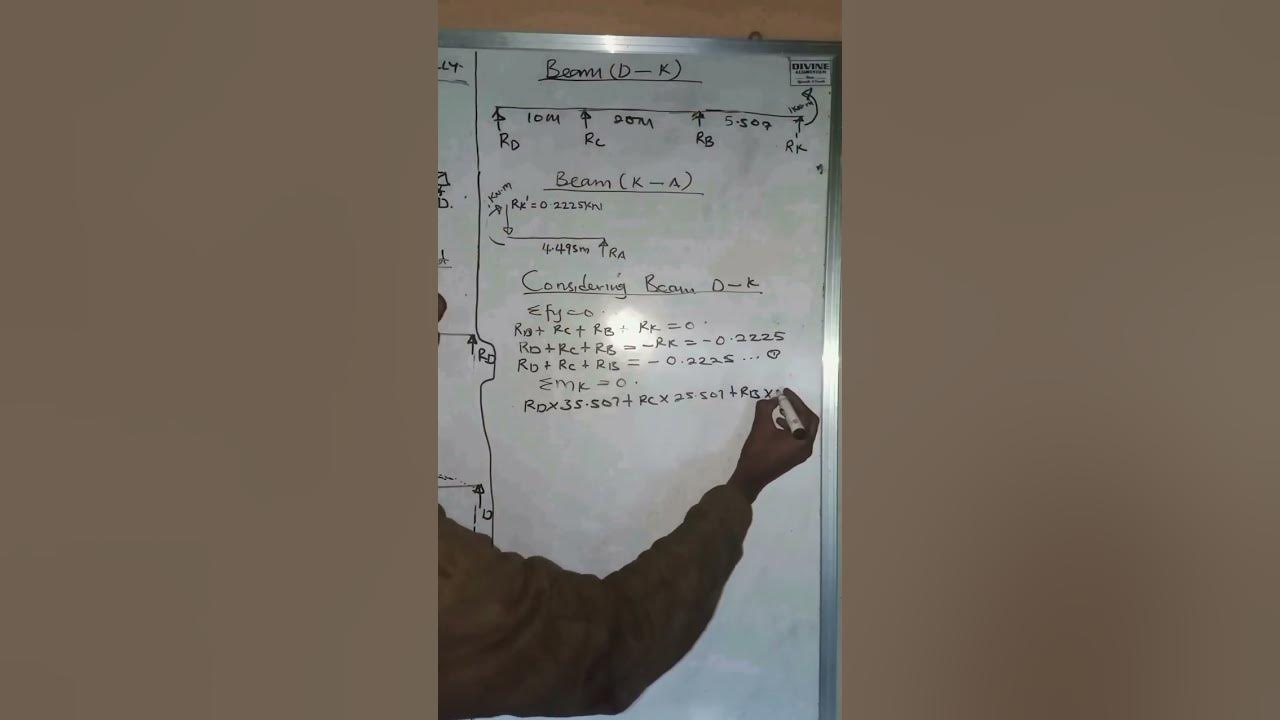 LY
Beam (D-K)
DIVINE
1KN.m
10m 20m 5.507
RD RC RB RK
Beam (K-A)
1KN.m
RK' = 0.2225KN
D.
4.493m RA
Considering Beam D-K
Σfy=0.
RD + RC + RB + RK = 0.
RD+RC+RB = -RK = -0.2225
RD + RC + RB = -0.2225 ... ①
RD
ΣmK = 0.
RD×35.507+RC×25.507+RB×
D